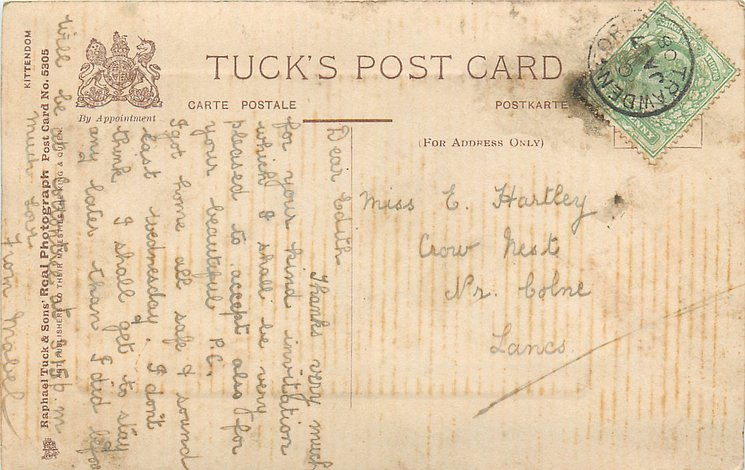 KITTENDOM
Raphael Tuck & Sons' Real Photograph Post Card No. 5305
ART PUBLISHERS TO THEIR MAJESTIES THE KING & QUEEN.
By Appointment
TUCK'S POST CARD
CARTE POSTALE
POSTKARTE
(FOR ADDRESS ONLY)
TRAWDEN
Miss E. Hartley
Crow Nest
Nr. Colne
Lancs.
Dear Edith
Thanks very much
for your kind invitation
which I shall be very
pleased to accept also for
your beautiful P.C.
I got home all safe & sound
last wednesday. I don't
think I shall get to stay
any later than I did before
will be
much love
From Mabel